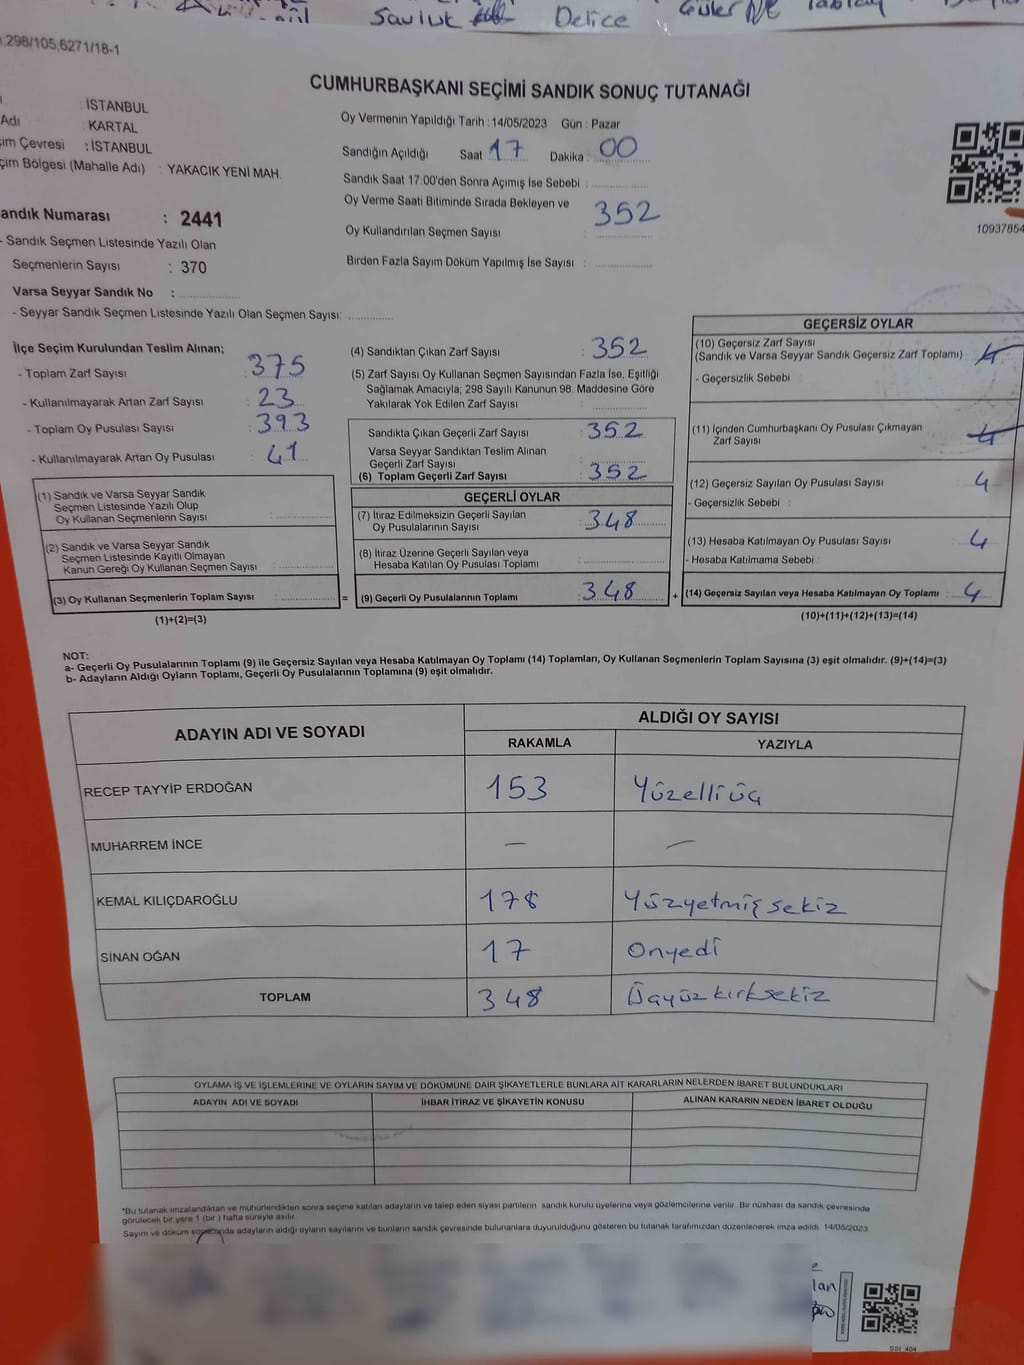 Savluk Delice Güler
298/105,6271/18-1
CUMHURBAŞKANI SEÇİMİ SANDIK SONUÇ TUTANAĞI
: İSTANBUL
Adı : KARTAL
çim Çevresi : İSTANBUL
çim Bölgesi (Mahalle Adı) : YAKACIK YENİ MAH.
andık Numarası : 2441
- Sandık Seçmen Listesinde Yazılı Olan
Seçmenlerin Sayısı : 370
Varsa Seyyar Sandık No :
- Seyyar Sandık Seçmen Listesinde Yazılı Olan Seçmen Sayısı:
Oy Vermenin Yapıldığı Tarih : 14/05/2023 Gün : Pazar
Sandığın Açıldığı Saat 17 Dakika : 00
Sandık Saat 17:00'den Sonra Açımış İse Sebebi :
Oy Verme Saati Bitiminde Sırada Bekleyen ve
Oy Kullandırılan Seçmen Sayısı : 352
Birden Fazla Sayım Döküm Yapılmış İse Sayısı :
10937854
İlçe Seçim Kurulundan Teslim Alınan;
- Toplam Zarf Sayısı : 375
- Kullanılmayarak Artan Zarf Sayısı : 23
- Toplam Oy Pusulası Sayısı : 393
- Kullanılmayarak Artan Oy Pusulası : 41
(1) Sandık ve Varsa Seyyar Sandık
Seçmen Listesinde Yazılı Olup
Oy Kullanan Seçmenlerin Sayısı :
(2) Sandık ve Varsa Seyyar Sandık
Seçmen Listesinde Kayıtlı Olmayan
Kanun Gereği Oy Kullanan Seçmen Sayısı :
(3) Oy Kullanan Seçmenlerin Toplam Sayısı :
(1)+(2)=(3)
(4) Sandıktan Çıkan Zarf Sayısı : 352
(5) Zarf Sayısı Oy Kullanan Seçmen Sayısından Fazla İse, Eşitliği
Sağlamak Amacıyla; 298 Sayılı Kanunun 98. Maddesine Göre
Yakılarak Yok Edilen Zarf Sayısı :
Sandıkta Çıkan Geçerli Zarf Sayısı : 352
Varsa Seyyar Sandıktan Teslim Alınan
Geçerli Zarf Sayısı :
(6) Toplam Geçerli Zarf Sayısı : 352
GEÇERLİ OYLAR
(7) İtiraz Edilmeksizin Geçerli Sayılan
Oy Pusulalarının Sayısı : 348
(8) İtiraz Üzerine Geçerli Sayılan veya
Hesaba Katılan Oy Pusulası Toplamı :
= (9) Geçerli Oy Pusulalarının Toplamı : 348
GEÇERSİZ OYLAR
(10) Geçersiz Zarf Sayısı
(Sandık ve Varsa Seyyar Sandık Geçersiz Zarf Toplamı) : 4
- Geçersizlik Sebebi :
(11) İçinden Cumhurbaşkanı Oy Pusulası Çıkmayan
Zarf Sayısı : 4
(12) Geçersiz Sayılan Oy Pusulası Sayısı : 4
- Geçersizlik Sebebi :
(13) Hesaba Katılmayan Oy Pusulası Sayısı : 4
- Hesaba Katılmama Sebebi :
+ (14) Geçersiz Sayılan veya Hesaba Katılmayan Oy Toplamı : 4
(10)+(11)+(12)+(13)=(14)
NOT:
a- Geçerli Oy Pusulalarının Toplamı (9) ile Geçersiz Sayılan veya Hesaba Katılmayan Oy Toplamı (14) Toplamları, Oy Kullanan Seçmenlerin Toplam Sayısına (3) eşit olmalıdır. (9)+(14)=(3)
b- Adayların Aldığı Oyların Toplamı, Geçerli Oy Pusulalarının Toplamına (9) eşit olmalıdır.
ADAYIN ADI VE SOYADI ALDIĞI OY SAYISI
RAKAMLA YAZIYLA
RECEP TAYYİP ERDOĞAN 153 Yüzelliüç
MUHARREM İNCE — —
KEMAL KILIÇDAROĞLU 178 Yüzyetmişsekiz
SİNAN OĞAN 17 Onyedi
TOPLAM 348 Üçyüzkırksekiz
OYLAMA İŞ VE İŞLEMLERİNE VE OYLARIN SAYIM VE DÖKÜMÜNE DAİR ŞİKAYETLERLE BUNLARA AİT KARARLARIN NELERDEN İBARET BULUNDUKLARI
ADAYIN ADI VE SOYADI İHBAR İTİRAZ VE ŞİKAYETİN KONUSU ALINAN KARARIN NEDEN İBARET OLDUĞU
*Bu tutanak imzalandıktan ve mühürlendikten sonra seçime katılan adayların ve talep eden siyasi partilerin sandık kurulu üyelerine veya gözlemcilerine verilir. Bir nüshası da sandık çevresinde
görülecek bir yere 1 (bir ) hafta süreyle asılır.
Sayım ve döküm sonucunda adayların aldığı oyların sayılarını ve bunların sandık çevresinde bulunanlara duyurulduğunu gösteren bu tutanak tarafımızdan düzenlenerek imza edildi. 14/05/2023
lan